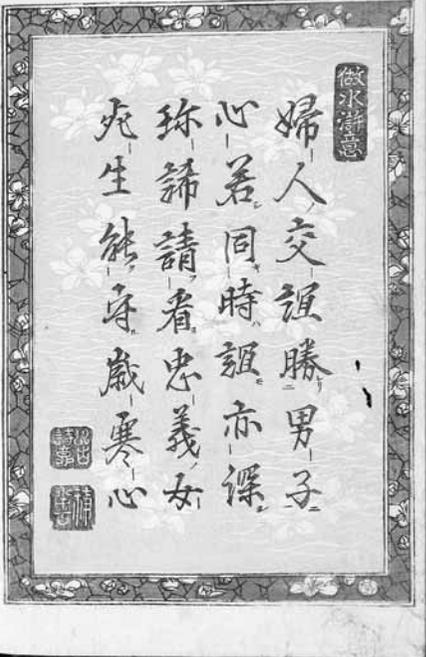 倣水滸意
婦人交誼勝男子
心若同時誼亦深
請看忠義女
死生能守歳寒心